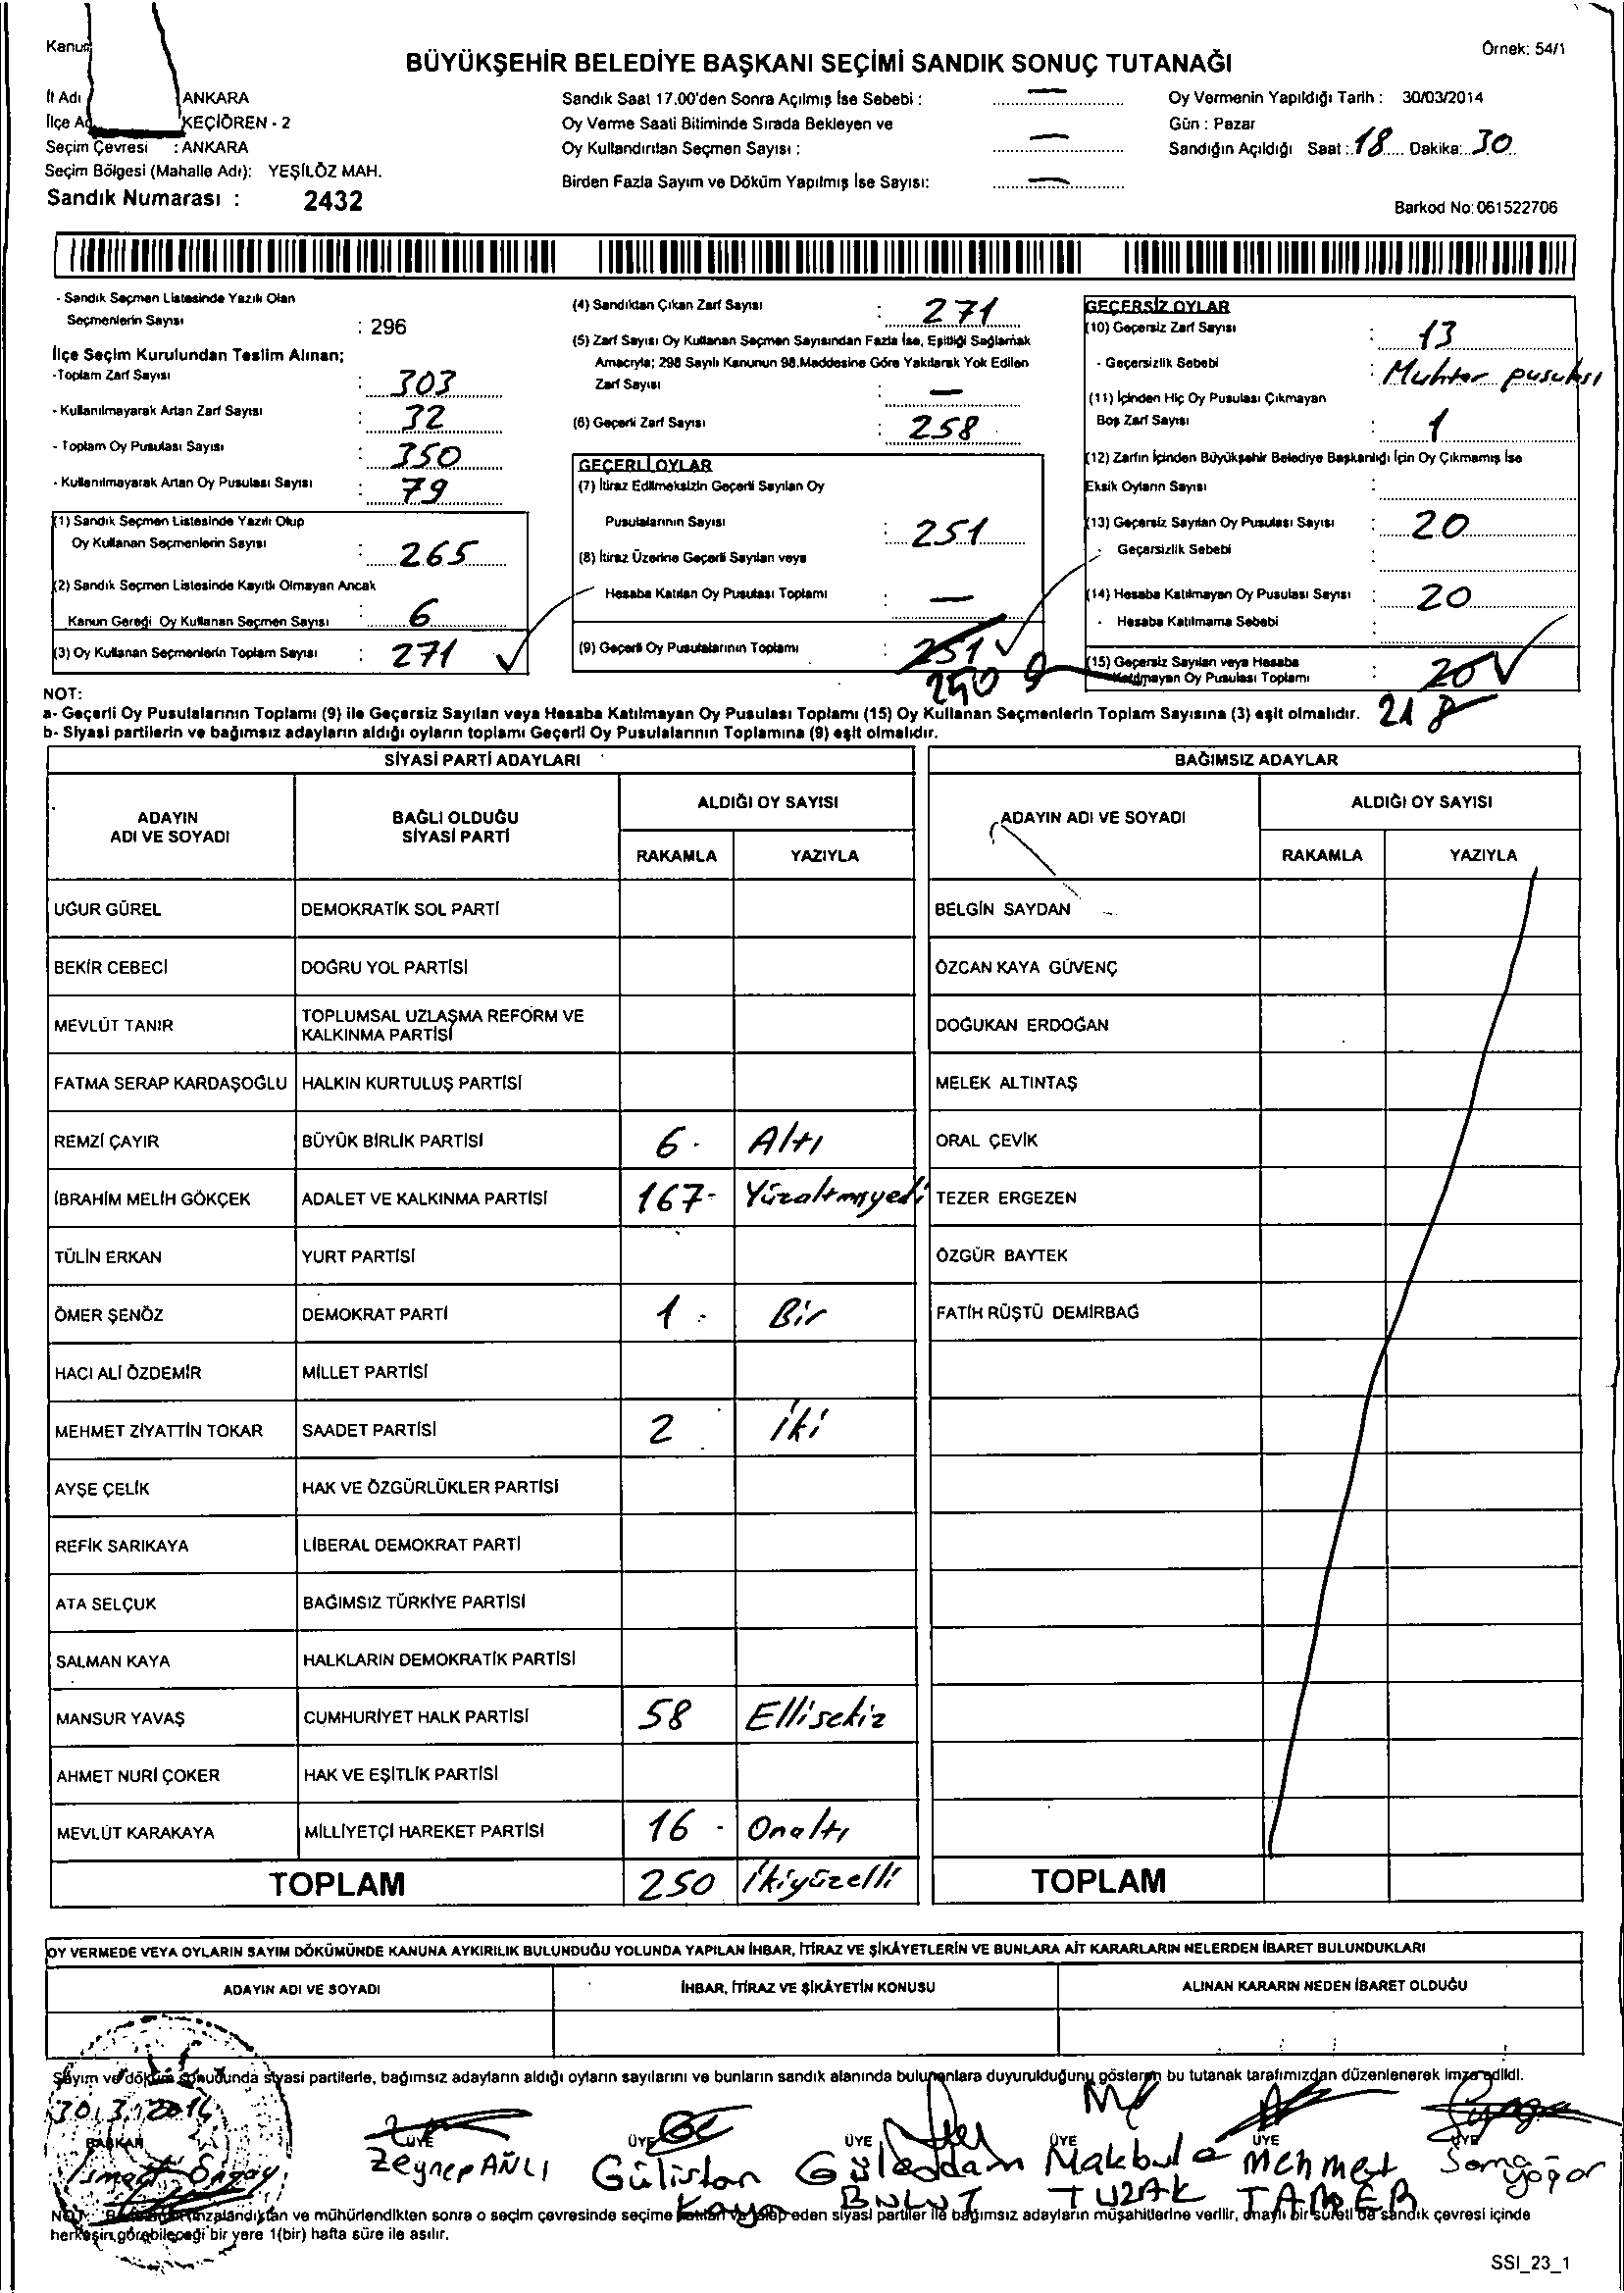 Kanun
Örnek: 54/1
BÜYÜKŞEHİR BELEDİYE BAŞKANI SEÇİMİ SANDIK SONUÇ TUTANAĞI
İl Adı ANKARA
İlçe Ad KEÇİÖREN - 2
Seçim Çevresi : ANKARA
Seçim Bölgesi (Mahalle Adı): YEŞİLÖZ MAH.
Sandık Numarası : 2432
Sandık Saat 17.00'den Sonra Açılmış İse Sebebi : —
Oy Verme Saati Bitiminde Sırada Bekleyen ve
Oy Kullandırılan Seçmen Sayısı : —
Birden Fazla Sayım ve Döküm Yapılmış İse Sayısı: —
Oy Vermenin Yapıldığı Tarih : 30/03/2014
Gün : Pazar
Sandığın Açıldığı Saat : 18 Dakika: 30
Barkod No: 061522706
- Sandık Seçmen Listesinde Yazılı Olan
Seçmenlerin Sayısı : 296
İlçe Seçim Kurulundan Teslim Alınan;
-Toplam Zarf Sayısı : 303
- Kullanılmayarak Artan Zarf Sayısı : 32
- Toplam Oy Pusulası Sayısı : 350
- Kullanılmayarak Artan Oy Pusulası Sayısı : 79
(1) Sandık Seçmen Listesinde Yazılı Olup
Oy Kullanan Seçmenlerin Sayısı : 265
(2) Sandık Seçmen Listesinde Kayıtlı Olmayan Ancak
Kanun Gereği Oy Kullanan Seçmen Sayısı : 6
(3) Oy Kullanan Seçmenlerin Toplam Sayısı : 271
(4) Sandıktan Çıkan Zarf Sayısı : 271
(5) Zarf Sayısı Oy Kullanan Seçmen Sayısından Fazla İse, Eşitliği Sağlamak
Amacıyla; 298 Sayılı Kanunun 98.Maddesine Göre Yakılarak Yok Edilen
Zarf Sayısı : —
(6) Geçerli Zarf Sayısı : 258
GEÇERLİ OYLAR
(7) İtiraz Edilmeksizin Geçerli Sayılan Oy
Pusulalarının Sayısı : 251
(8) İtiraz Üzerine Geçerli Sayılan veya
Hesaba Katılan Oy Pusulası Toplamı : —
(9) Geçerli Oy Pusulalarının Toplamı : 251
250
GEÇERSİZ OYLAR
(10) Geçersiz Zarf Sayısı : 13
- Geçersizlik Sebebi : Muhtar pusulası
(11) İçinden Hiç Oy Pusulası Çıkmayan
Boş Zarf Sayısı : 1
(12) Zarfın İçinden Büyükşehir Belediye Başkanlığı İçin Oy Çıkmamış İse
Eksik Oyların Sayısı :
(13) Geçersiz Sayılan Oy Pusulası Sayısı : 20
- Geçersizlik Sebebi :
(14) Hesaba Katılmayan Oy Pusulası Sayısı : 20
- Hesaba Katılmama Sebebi :
(15) Geçersiz Sayılan veya Hesaba
Katılmayan Oy Pusulası Toplamı : 20
21
NOT:
a- Geçerli Oy Pusulalarının Toplamı (9) ile Geçersiz Sayılan veya Hesaba Katılmayan Oy Pusulası Toplamı (15) Oy Kullanan Seçmenlerin Toplam Sayısına (3) eşit olmalıdır.
b- Siyasi partilerin ve bağımsız adayların aldığı oyların toplamı Geçerli Oy Pusulalarının Toplamına (9) eşit olmalıdır.
SİYASİ PARTİ ADAYLARI
ADAYIN ADI VE SOYADI
BAĞLI OLDUĞU SİYASİ PARTİ
ALDIĞI OY SAYISI
RAKAMLA YAZIYLA
UĞUR GÜREL DEMOKRATİK SOL PARTİ
BEKİR CEBECİ DOĞRU YOL PARTİSİ
MEVLÜT TANIR TOPLUMSAL UZLAŞMA REFORM VE
KALKINMA PARTİSİ
FATMA SERAP KARDAŞOĞLU HALKIN KURTULUŞ PARTİSİ
REMZİ ÇAYIR BÜYÜK BİRLİK PARTİSİ 6 - Altı
İBRAHİM MELİH GÖKÇEK ADALET VE KALKINMA PARTİSİ 167- Yüzaltmışyedi
TÜLİN ERKAN YURT PARTİSİ
ÖMER ŞENÖZ DEMOKRAT PARTİ 1 - Bir
HACI ALİ ÖZDEMİR MİLLET PARTİSİ
MEHMET ZİYATTİN TOKAR SAADET PARTİSİ 2 İki
AYŞE ÇELİK HAK VE ÖZGÜRLÜKLER PARTİSİ
REFİK SARIKAYA LİBERAL DEMOKRAT PARTİ
ATA SELÇUK BAĞIMSIZ TÜRKİYE PARTİSİ
SALMAN KAYA HALKLARIN DEMOKRATİK PARTİSİ
MANSUR YAVAŞ CUMHURİYET HALK PARTİSİ 58 Ellisekiz
AHMET NURİ ÇOKER HAK VE EŞİTLİK PARTİSİ
MEVLÜT KARAKAYA MİLLİYETÇİ HAREKET PARTİSİ 16 - Onaltı
TOPLAM 250 İkiyüzelli
BAĞIMSIZ ADAYLAR
ADAYIN ADI VE SOYADI
ALDIĞI OY SAYISI
RAKAMLA YAZIYLA
BELGİN SAYDAN
ÖZCAN KAYA GÜVENÇ
DOĞUKAN ERDOĞAN
MELEK ALTINTAŞ
ORAL ÇEVİK
TEZER ERGEZEN
ÖZGÜR BAYTEK
FATİH RÜŞTÜ DEMİRBAĞ
TOPLAM
OY VERMEDE VEYA OYLARIN SAYIM DÖKÜMÜNDE KANUNA AYKIRILIK BULUNDUĞU YOLUNDA YAPILAN İHBAR, İTİRAZ VE ŞİKÂYETLERİN VE BUNLARA AİT KARARLARIN NELERDEN İBARET BULUNDUKLARI
ADAYIN ADI VE SOYADI İHBAR, İTİRAZ VE ŞİKÂYETİN KONUSU ALINAN KARARIN NEDEN İBARET OLDUĞU
Sayım ve döküm sonucunda siyasi partilerle, bağımsız adayların aldığı oyların sayılarını ve bunların sandık alanında bulunanlara duyurulduğunu gösteren bu tutanak tarafımızdan düzenlenerek imza edildi.
30.3.2014
BAŞKAN ÜYE ÜYE ÜYE ÜYE ÜYE ÜYE
İsmail
Zeynep ANLI
Gülistan Kaya
BULUT
Makbule TUZAK
Mehmet TAMER
NOT: imzalandıktan ve mühürlendikten sonra o seçim çevresinde seçime katılan ve talep eden siyasi partiler ile bağımsız adayların müşahitlerine verilir, onaylı bir sureti de sandık çevresi içinde
herkesin görebileceği bir yere 1(bir) hafta süre ile asılır.
SSI_23_1